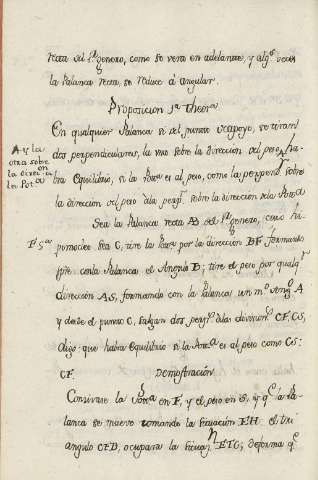 recta del 1º genero, como se vera en adelante, y algs veces
la Palanca recta, se reduce á angular.
Proposicion 1a Theora
En qualquier Palanca si del punto de apoyo, se tiran
dos perpendiculares, la una sobre la direccion del peso, ha-
Ay la
otra sobre
la direcon
la Pota
bra Equilibrio, si la Pota es al peso, como la perpendr sobre
la direccion del peso ála perpr sobre la direccion dela Pota
Sea la Palanca recta AB del 1r genero, cuio hi-
pomoclio sea C, tire la Pota por la direccion BF formando
spte conla Palanca el Angulo B; tire el peso por qualqr
direccion AS, formando con la Palanca un mo Angº A
y desde el punto C, salgan dos perps álas direccions CF, CS,
digo: que habra Equilibrio si la Pota es al peso como CS:
CF.
Demostracion
Concivase la Pota en F, y el peso en S, y qe la Pa-
lanca se mueve tomando la situacion EH el tri-
angulo CFB, ocupara la situan ETC; de forma qe